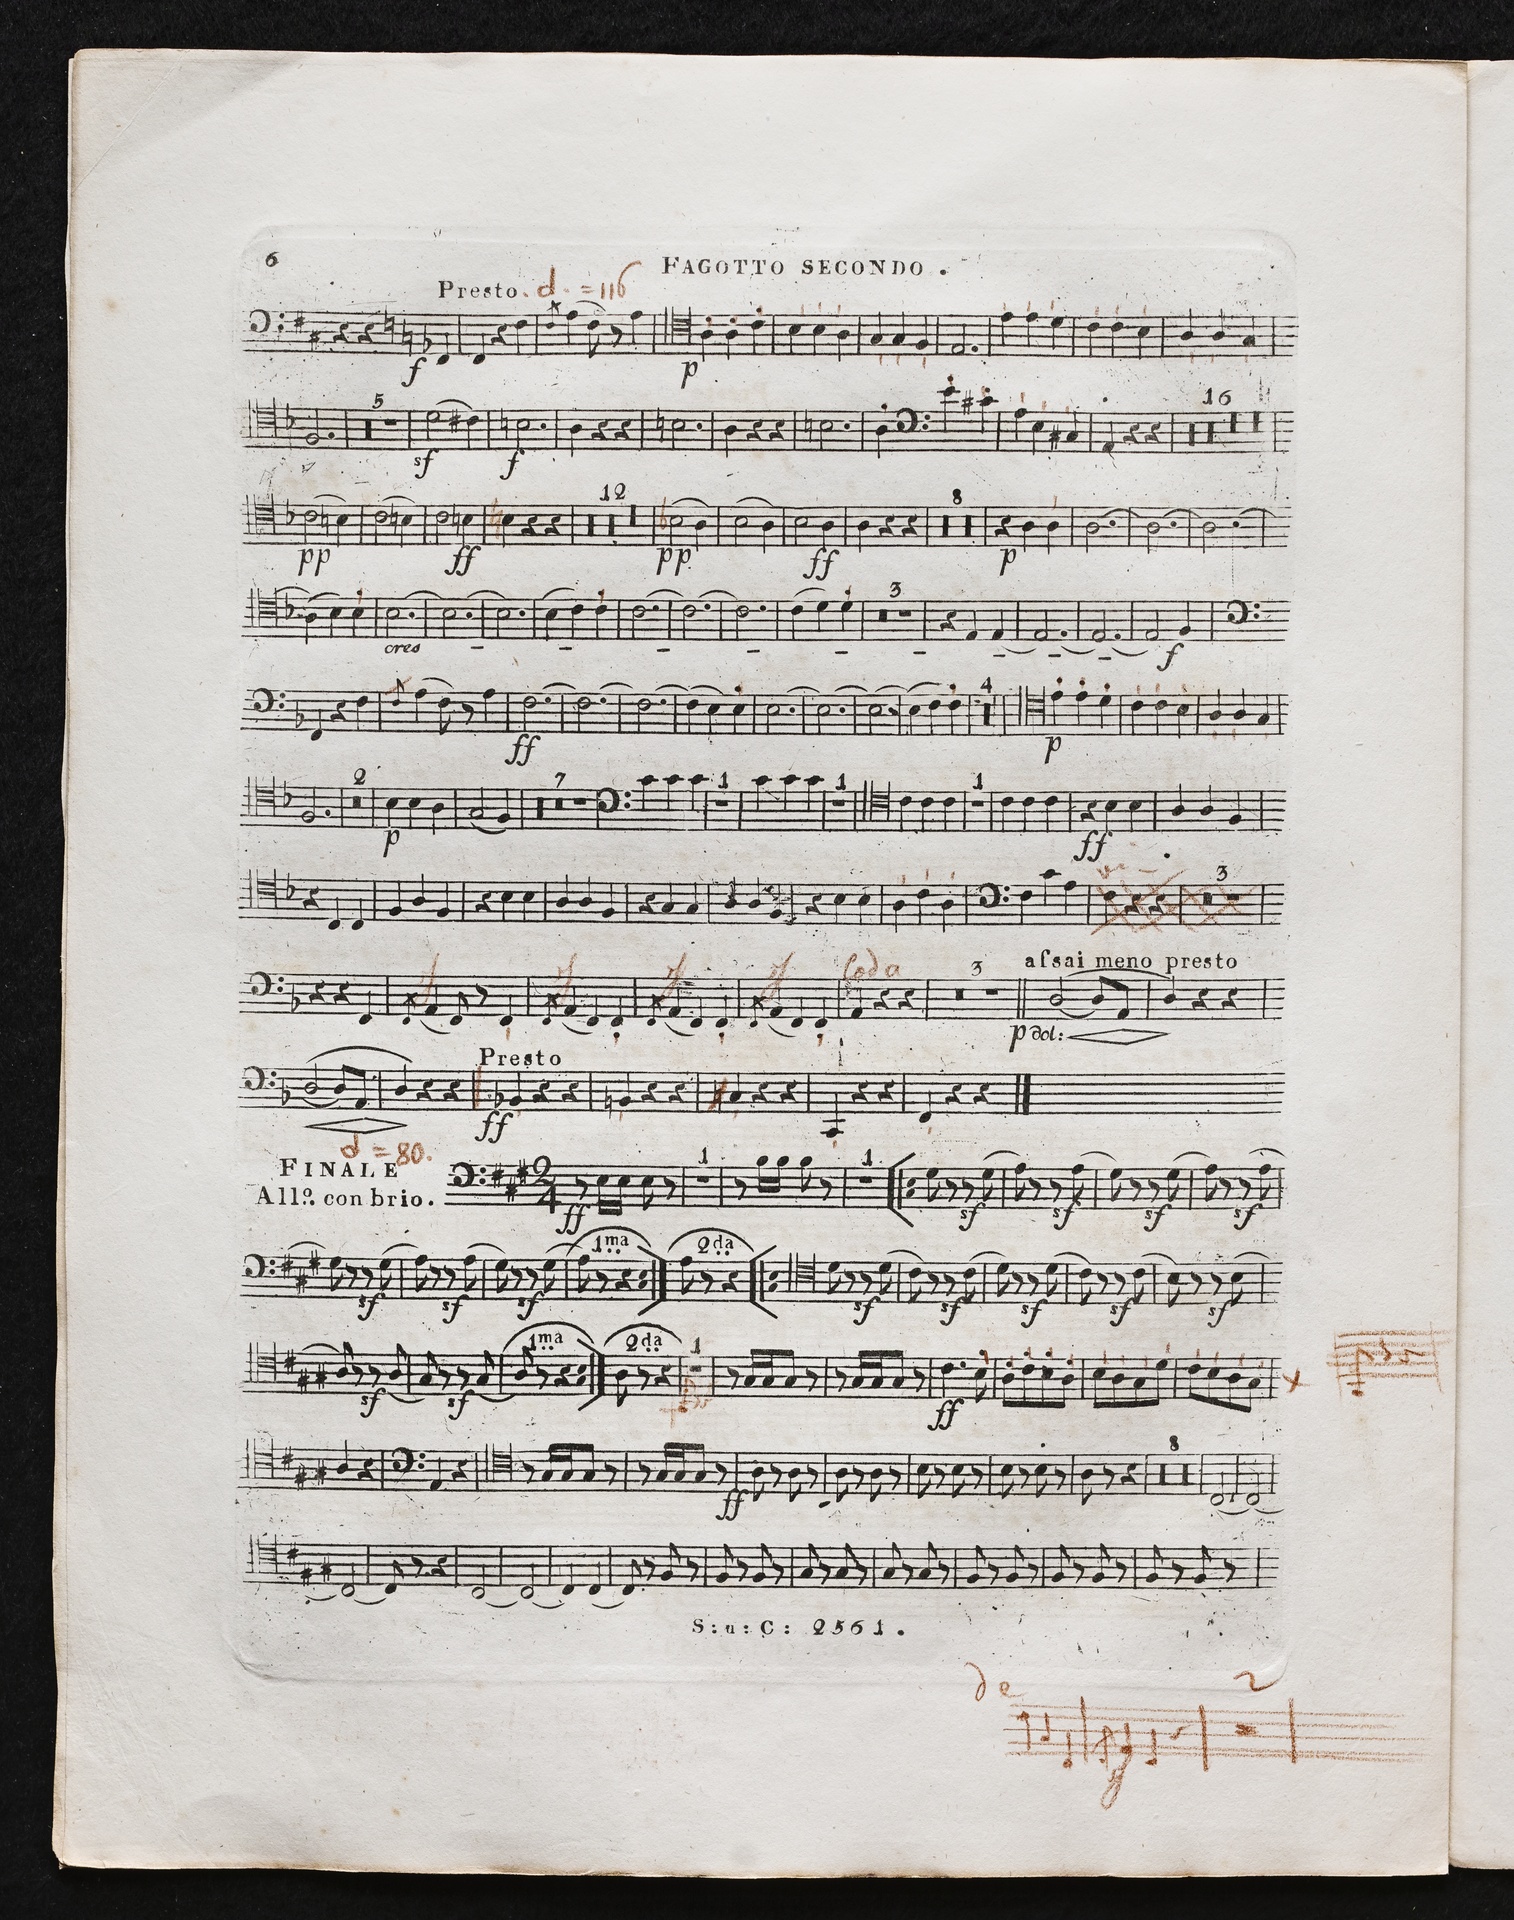 6
FAGOTTO SECONDO.
Presto. d. = 116
f
p
5
16
sf
f
12
8
pp
ff
pp
ff
p
3
cres
f
4
ff
p
2
7
1
1
1
p
ff
3
Coda
3
aſsai meno presto
p dol:
Presto
ff
d = 80.
FINALE
All.º con brio.
2
4
1
1
ff
sf
sf
sf
sf
1.ma
2.da
sf
sf
sf
sf
sf
sf
sf
sf
1.ma
2.da
1
sf
sf
ff
x
8
ff
S: u: C: 2561.
de
2